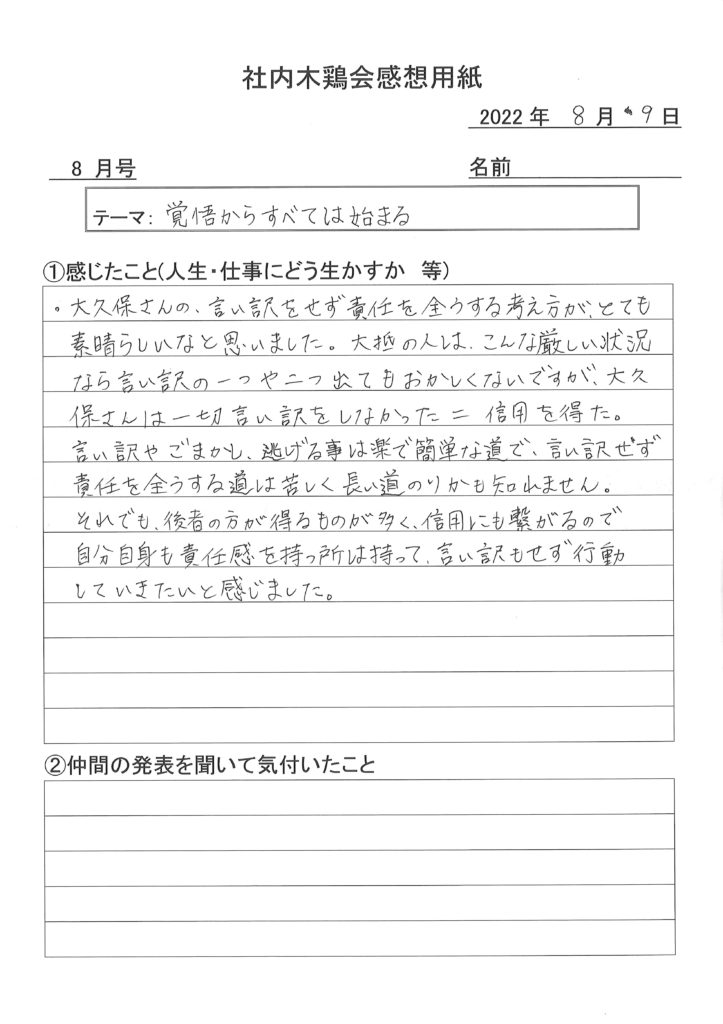 社内木鶏会感想用紙
2022 年 8 月 9 日
8 月号 名前
テーマ: 覚悟からすべては始まる
①感じたこと(人生・仕事にどう生かすか 等)
・大久保さんの、言い訳をせず責任を全うする考え方が、とても
素晴らしいなと思いました。大抵の人は、こんな厳しい状況
なら言い訳の一つや二つ出てもおかしくないですが、大久
保さんは一切言い訳をしなかった = 信用を得た。
言い訳やごまかし、逃げる事は楽で簡単な道で、言い訳せず
責任を全うする道は苦しく長い道のりかも知れません。
それでも、後者の方が得るものが多く、信用にも繋がるので
自分自身も責任感を持つ所は持って、言い訳もせず行動
していきたいと感じました。
②仲間の発表を聞いて気付いたこと